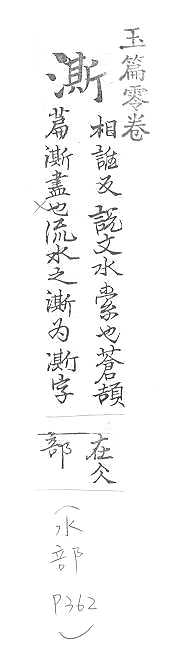 玉篇零卷
澌
相誰反説文水索也蒼頡
篇澌盡也流水之澌为凘字
在仌
部
(水部 P362)